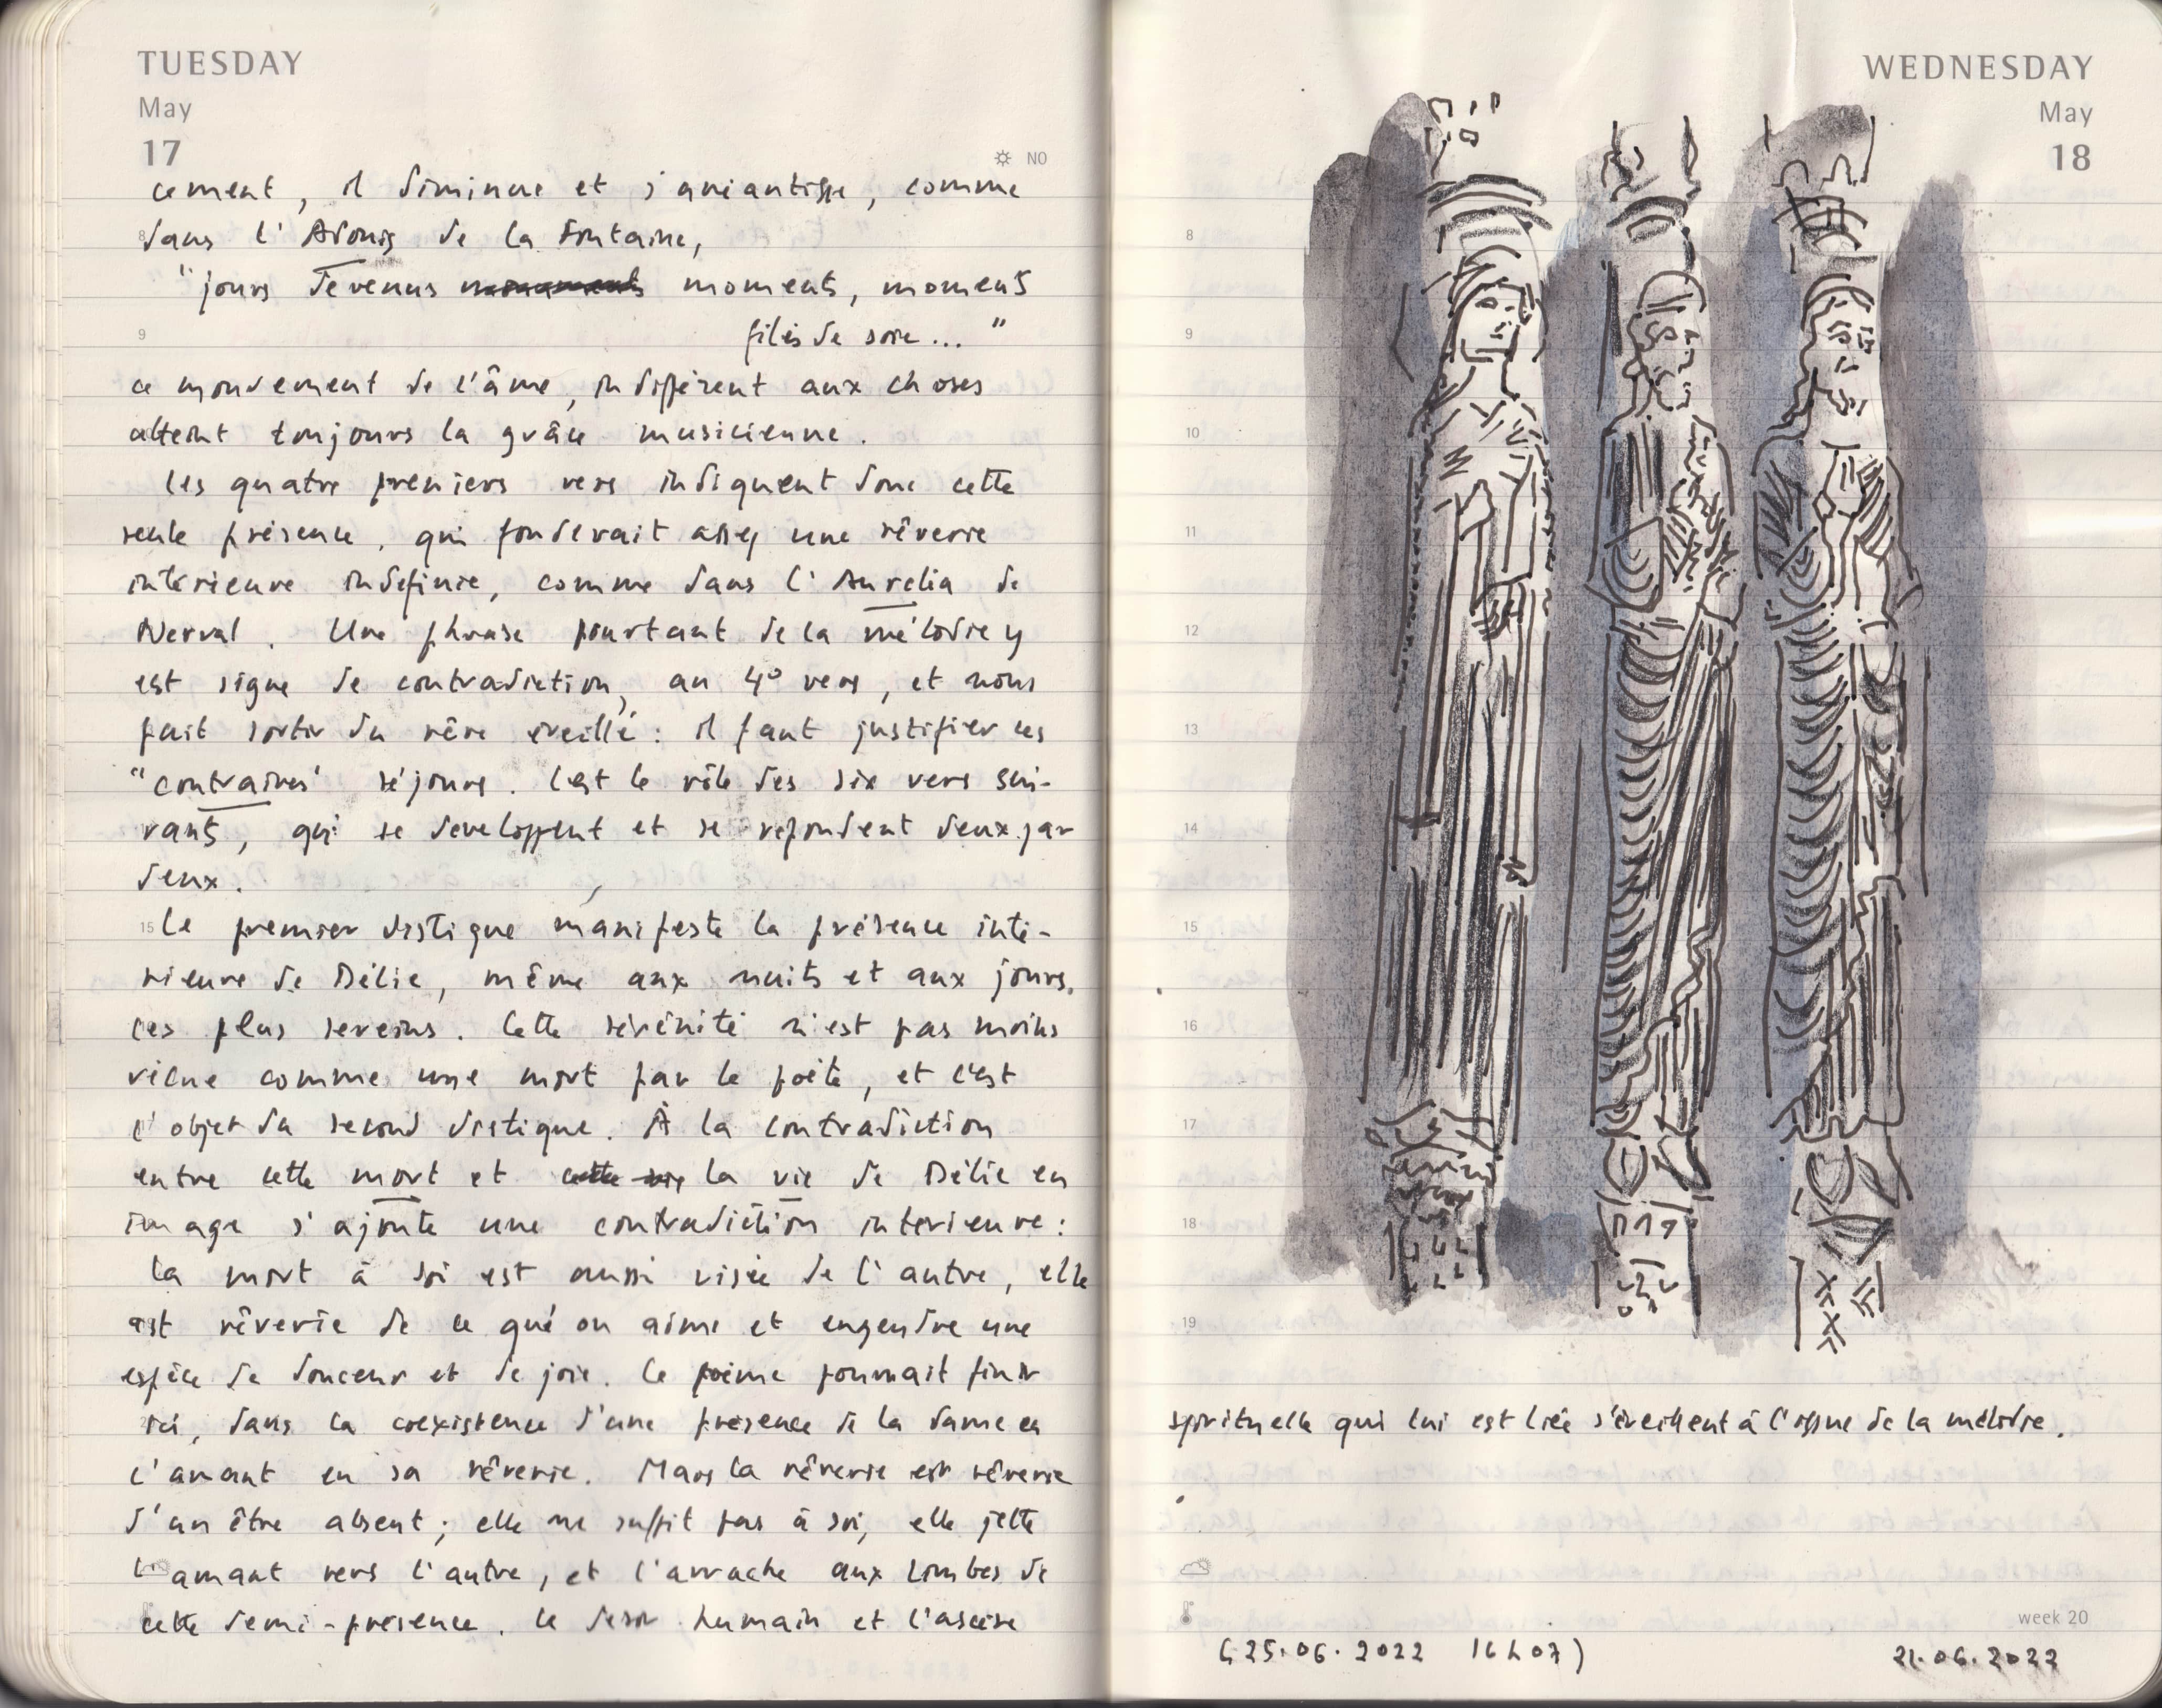 TUESDAY
May
17
NO
cement, il diminue et s'anéantisse, comme
8 dans l'Adonis de La Fontaine,
"jours devenus moments, moments
9 filés de soie..."
ce mouvement de l'âme, indifférent aux choses
atteint toujours la grâce musicienne.
Les quatre premiers vers indiquent donc cette
seule présence, qui fonderait assez une rêverie
intérieure indéfinie, comme dans l'Aurélia de
Nerval. Une phrase pourtant de la mélodie y
est signe de contradiction, au 4° vers, et nous
fait sortir du rêve éveillé : il faut justifier ces
"contraires" séjours. C'est le rôle des six vers sui-
vants, qui se développent et se répondent deux par
deux.
15 Le premier distique manifeste la présence inté-
rieure de Délie, même aux nuits et aux jours,
les plus sereins. Cette sérénité n'est pas moins
vécue comme une mort par le poète, et c'est
l'objet du second distique. À la contradiction
entre cette mort et cette vie la vie de Délie en
image s'ajoute une contradiction intérieure :
la mort à soi est aussi visée de l'autre, elle
est rêverie de ce qu'on aime et engendre une
espèce de douceur et de joie. Le poème pourrait finir
ici, dans la coexistence d'une présence de la dame et
l'amant en sa rêverie. Mais la rêverie est rêverie
d'un être absent ; elle ne suffit pas à soi, elle jette
l'amant vers l'autre, et l'arrache aux limbes de
cette demi-présence. Le désir humain et l'ascèse
WEDNESDAY
May
18
8
9
10
11
12
13
14
15
16
17
18
19
spirituelle qui lui est liée s'éveillent à l'issue de la mélodie.
week 20
(25.06.2022 16h07)
21.06.2022